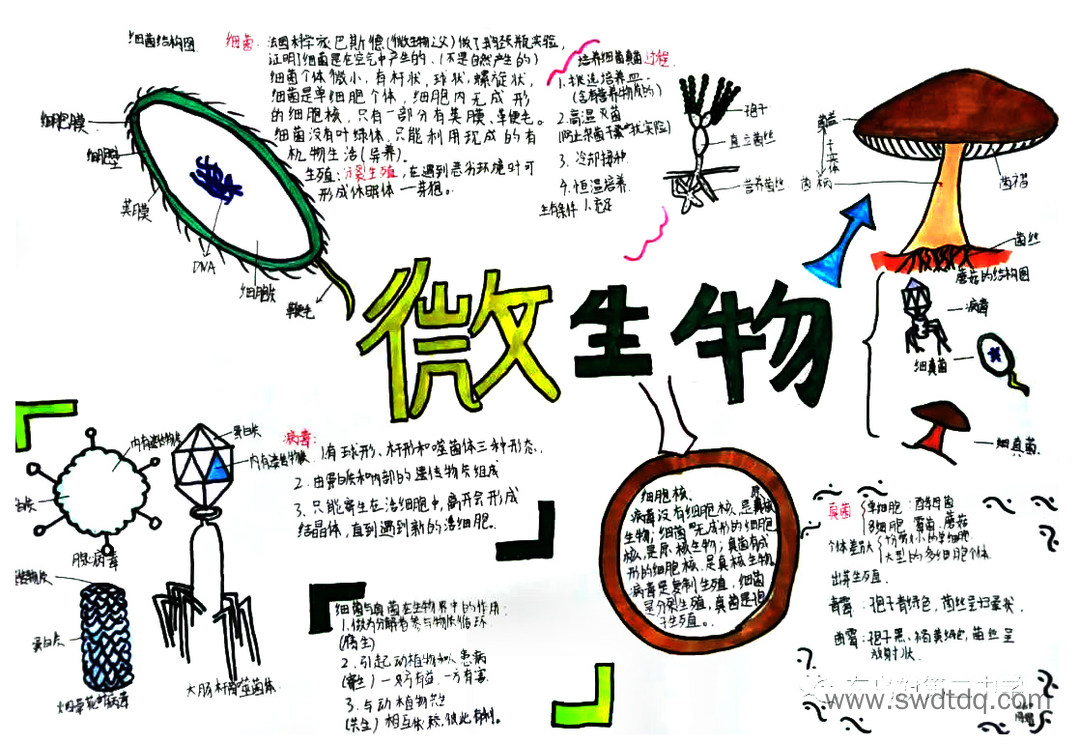 细菌结构图
细胞膜
细胞壁
荚膜
DNA
细胞质
鞭毛
细菌:
法国科学家巴斯德(微生物之父)做了鹅颈瓶实验,
证明了细菌是在空气中产生的.(不是自然产生的)
细菌个体微小,有杆状,球状,螺旋状,
细菌是单细胞个体,细胞内无成形
的细胞核,只有一部分有荚膜、鞭毛。
细菌没有叶绿体,只能利用现成的有
机物生活(异养)。
生殖:分裂生殖,在遇到恶劣环境时可
形成休眠体——芽孢。
培养细菌真菌过程
1.挑选培养皿.
(含有营养物质的)
2.高温灭菌
(防止杂菌干扰实验)
3. 冷却接种
4.恒温培养.
生存条件 1.充足
孢子
直立菌丝
营养菌丝
菌盖
子实体
菌柄
菌褶
菌丝
蘑菇的结构图
病毒
细真菌
细真菌
微生物
内有遗传物质
蛋白质
内有遗传物质
腺病毒
蛋白质
烟草花叶病毒
大肠杆菌噬菌体
病毒:
1.有球形、杆形和噬菌体三种形态.
2. 由蛋白质和内部的遗传物质组成
3. 只能寄生在活细胞中,离开会形成
结晶体,直到遇到新的活细胞。
细菌与真菌在生物界中的作用:
1.做为分解者参与物质循环
(腐生)
2. 引起动植物和人患病
(寄生) 一方有益,一方有害.
3. 与动植物共生
(共生) 相互依赖,彼此有利。
细胞核.
病毒没有细胞核,是原核
生物;细菌无成形的细胞
核,是原核生物;真菌有成
形的细胞核,是真核生物.
病毒是复制生殖,细菌
是分裂生殖,真菌是孢
子生殖。.
真菌
单细胞:酵母菌
多细胞:霉菌.蘑菇
个体差别大
个体微小的单细胞
大型的多细胞个体
出芽生殖.
青霉:孢子青绿色,菌丝呈扫帚状.
曲霉:孢子黑、褐黄绿色,菌丝呈
放射状.
www.swdtdq.com